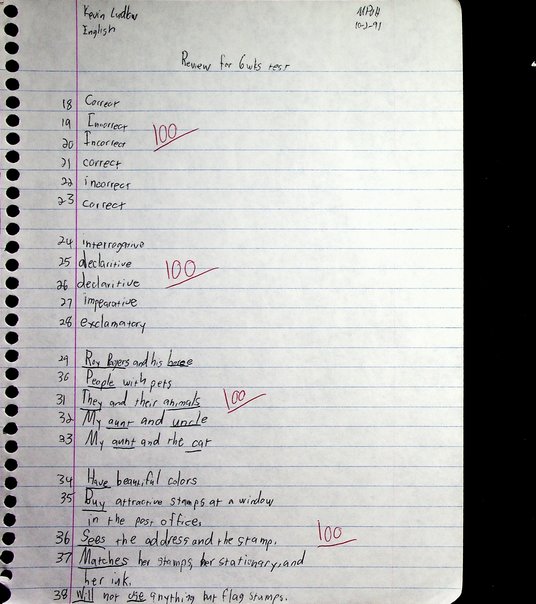 Kevin
English
10-3-91
Review for 6 wks test
18 Correct
19 Incorrect
20 Incorrect
100
21 correct
22 incorrect
23 correct
24 interrogative
25 declaritive
100
26 declaritive
27 impearative
28 exclamatory
29 Roy Rogers and his horse
30 People with pets
31 They and their animals
100
32 My aunt and uncle
33 My aunt and the cat
34 Have beautiful colors
35 Buy attractive stamps at a window
in the post office.
36 Sees the address and the stamp.
100
37 Matches her stamps, her stationary, and
her ink.
38 Will not use anything but flag stamps.